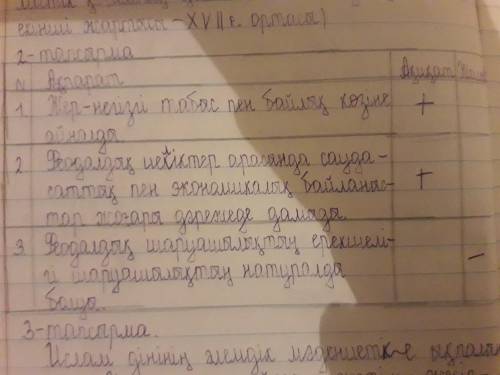 екінші жартысы - XVII ғ. ортасы)
2-тапсырма
N Ақпарат Ақиқат
1. Жер-негізгі табыс пен байлық көзіне +
айналды
2 Феодалдық иеліктер арасында сауда-
саттық пен экономикалық байланыс- +
тар жоғары дәрежеде дамыды.
3 Феодалдық шаруашылықтың ерекшелі-
гі шаруашылықтың натуралды -
болуы.
3-тапсырма.
Ислам дінінің әлемдік мәдениетк-е ықпалын